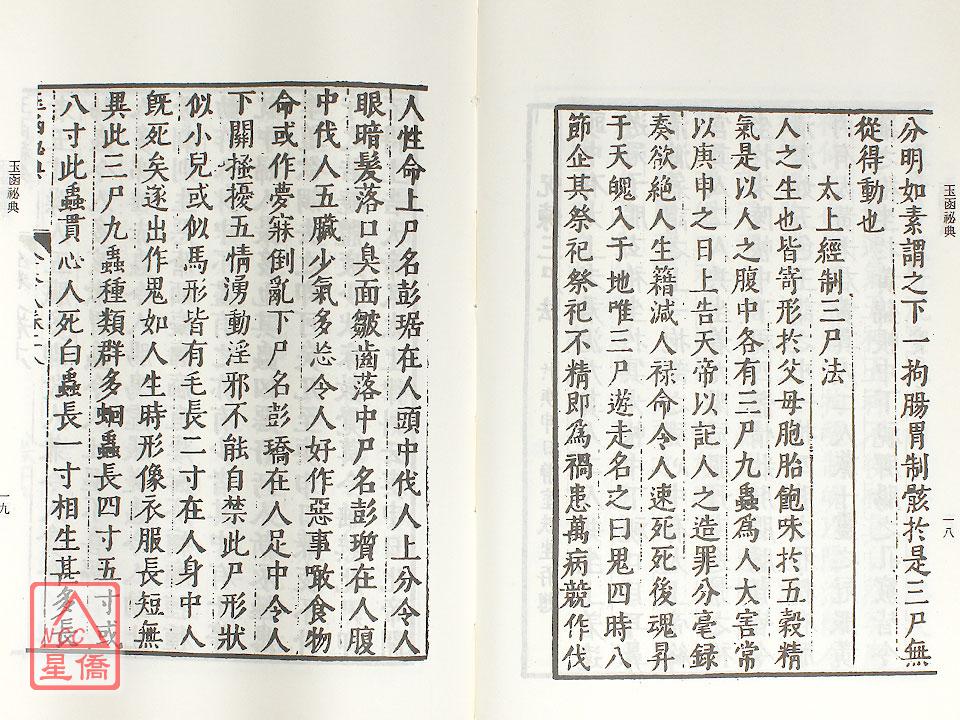 玉函祕典
一八
分明如素謂之下一拘腸胃制骸於是三尸無
從得動也
太上經制三尸法
人之生也皆寄形於父母胞胎飽味於五穀精
氣是以人之腹中各有三尸九蟲爲人大害常
以庚申之日上告天帝以記人之造罪分毫録
奏欲絶人生籍減人禄命令人速死死後魂昇
于天魄入于地唯三尸遊走名之曰鬼四時八
節企其祭祀祭祀不精即爲禍患萬病競作伐
人性命上尸名彭琚在人頭中伐人上分令人
眼暗髮落口臭面皺齒落中尸名彭瓆在人腹
中伐人五臟少氣多忘令人好作惡事噉食物
命或作夢寐倒亂下尸名彭琦在人足中令人
下關搔擾五情湧動淫邪不能自禁此尸形狀
似小兒或似馬形皆有毛長二寸在人身中人
既死矣遂出作鬼如人生時形像衣服長短無
異此三尸九蟲種類群多蛔蟲長四寸五寸或
八寸此蟲貫心人死白蟲長一寸相生甚多長
玉函祕典
玉函祕典
一九
NCC
星僑